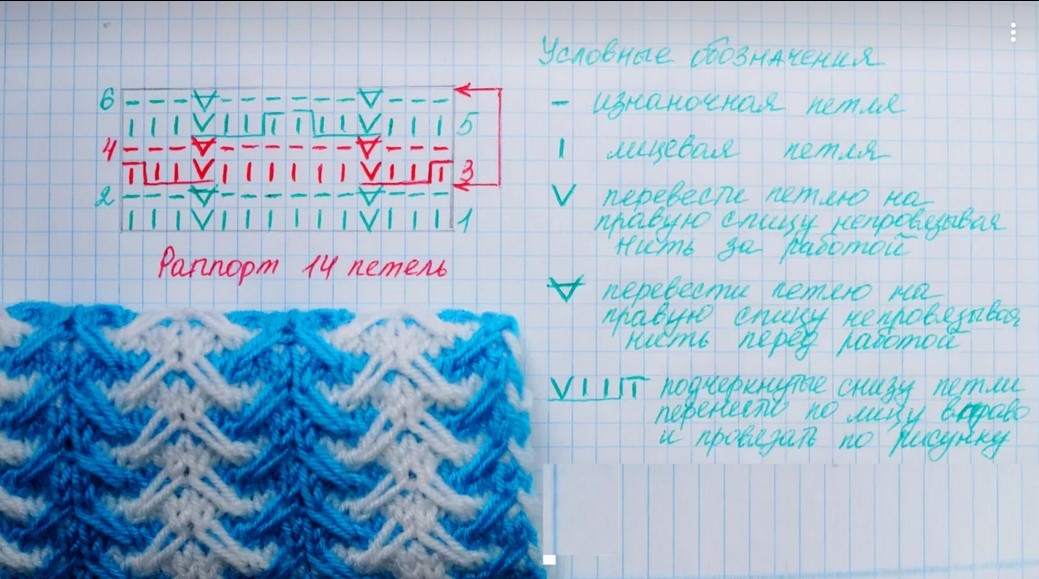 6
5
4
3
2
1
Раппорт 14 петель
Условные обозначения
- изнаночная петля
I лицевая петля
V перевести петлю на
правую спицу непровязывая
нить за работой
перевести петлю на
правую спицу непровязывая
нить перед работой
подчеркнутые снизу петли
перенести по лицу вправо
и провязать по рисунку